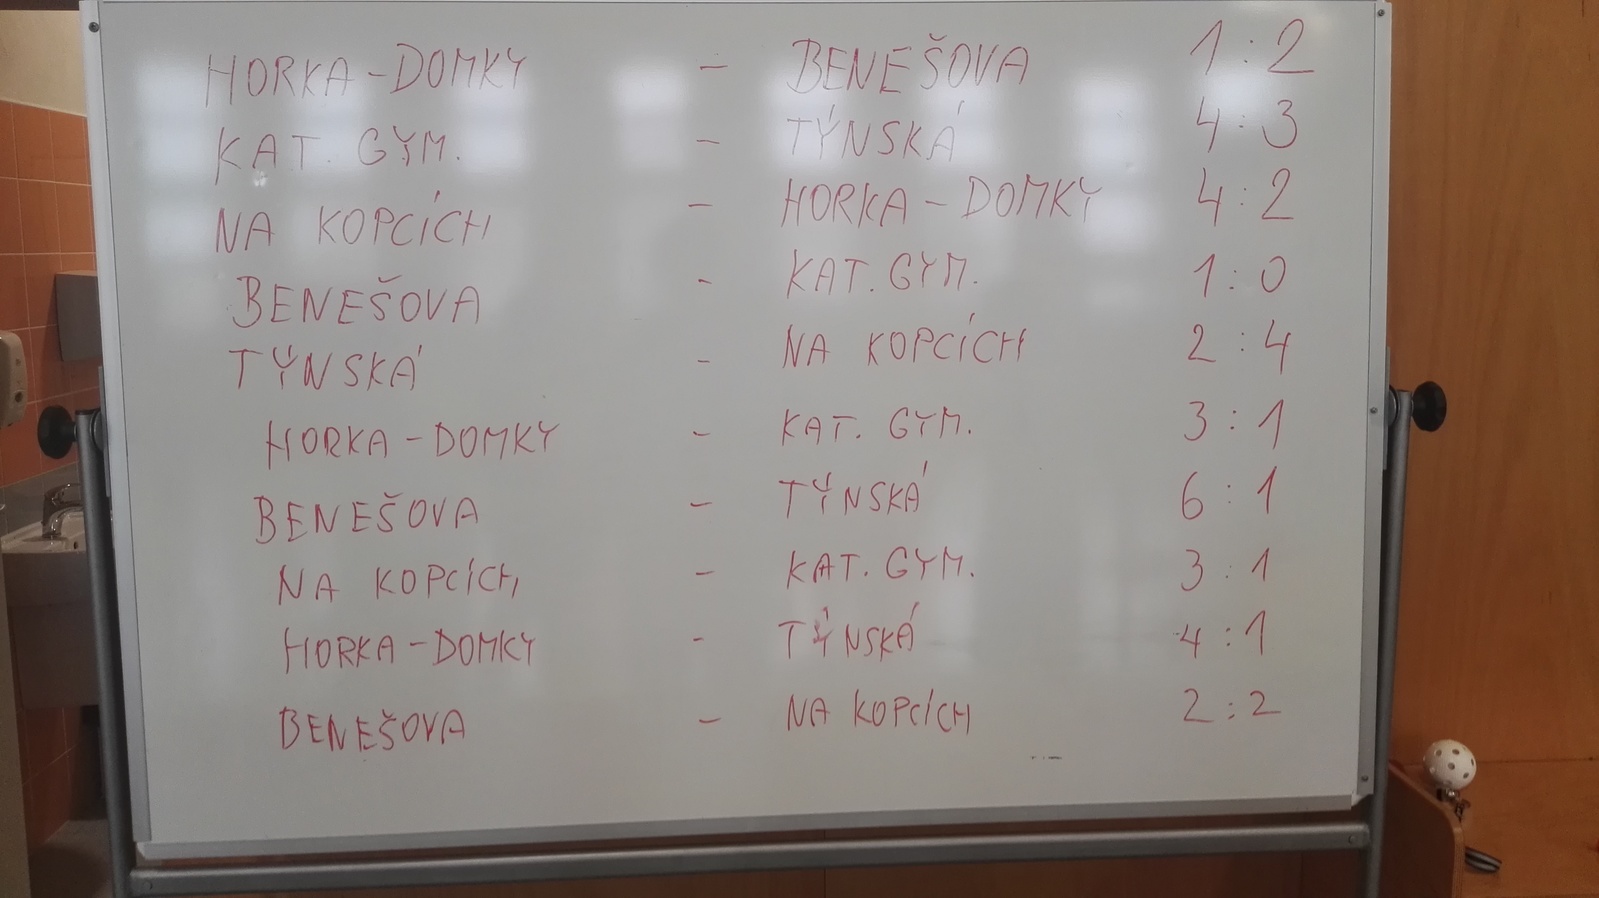 HORKA-DOMKY - BENEŠOVA 1:2
KAT. GYM. - TÝNSKÁ 4:3
NA KOPCÍCH - HORKA-DOMKY 4:2
BENEŠOVA - KAT. GYM. 1:0
TÝNSKÁ - NA KOPCÍCH 2:4
HORKA-DOMKY - KAT. GYM. 3:1
BENEŠOVA - TÝNSKÁ 6:1
NA KOPCÍCH - KAT. GYM. 3:1
HORKA-DOMKY - TÝNSKÁ 4:1
BENEŠOVA - NA KOPCÍCH 2:2